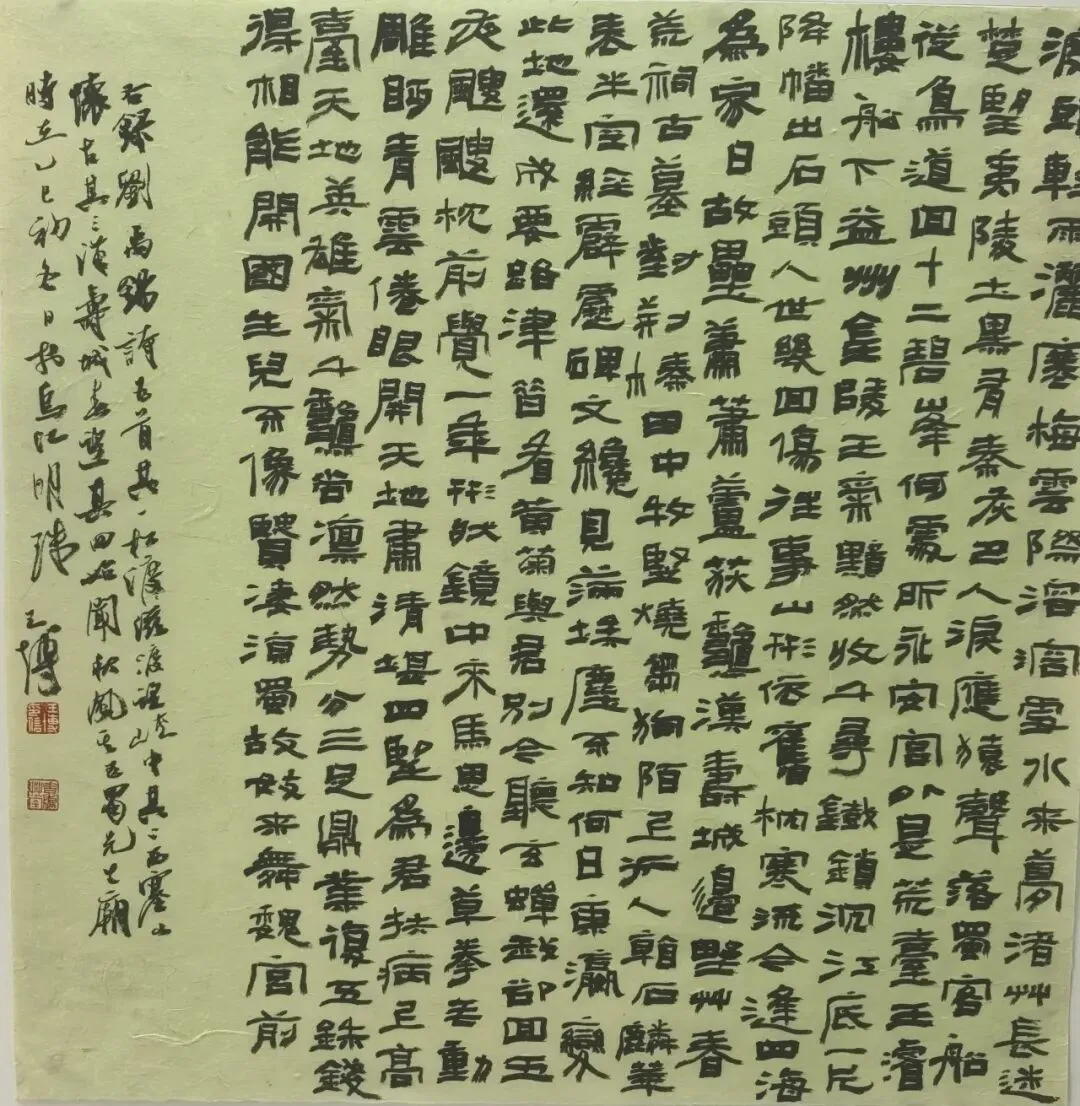 渡頭輕雨灑寒梅雲際溶溶雪水來夢渚艸長迷
楚望夷陵土黑有秦灰巴人淚應猿聲落蜀客船
從鳥道回十二碧峯何處所永安宮外是荒臺王濬
樓船下益州金陵王氣黯然收千尋鐵鎖沉江底一片
降幡出石頭人世幾回傷往事山形依舊枕寒流今逢四海
為家日故壘蕭蕭蘆荻龝漢壽城邊野艸春
荒祠古墓對荊榛田中牧豎燒芻狗陌上行人看石麟華
表半空經霹靂碑文纔見滿埃塵不知何日東瀛變
此地還成要路津昔看黃菊與君別今聽玄蟬我卻回五
夜颼颼枕前覺一年形狀鏡中來馬思邊草拳毛動
雕眄青雲倦眼開天地肅清堪四望為君扶病上高
臺天地英雄氣千龝尚凜然勢分三足鼎業復五銖錢
得相能開國生兒不像賢淒涼蜀故妓來舞魏宮前
右錄劉禹錫詩五首其一松渡滋渡望峽山中其二西塞山
懷古其三漢壽城春望其四始聞秋風其五蜀先主廟
時在乙巳初冬日於烏江明珠王博
王博印信